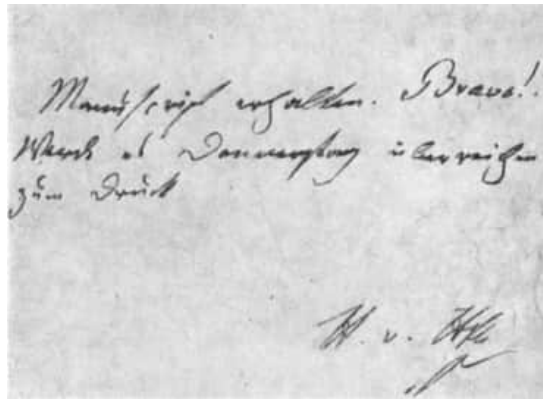 Manuscript erhalten. Bravo!
Werde es Donnerstag überreichen
zum Druck
H. v. Hh